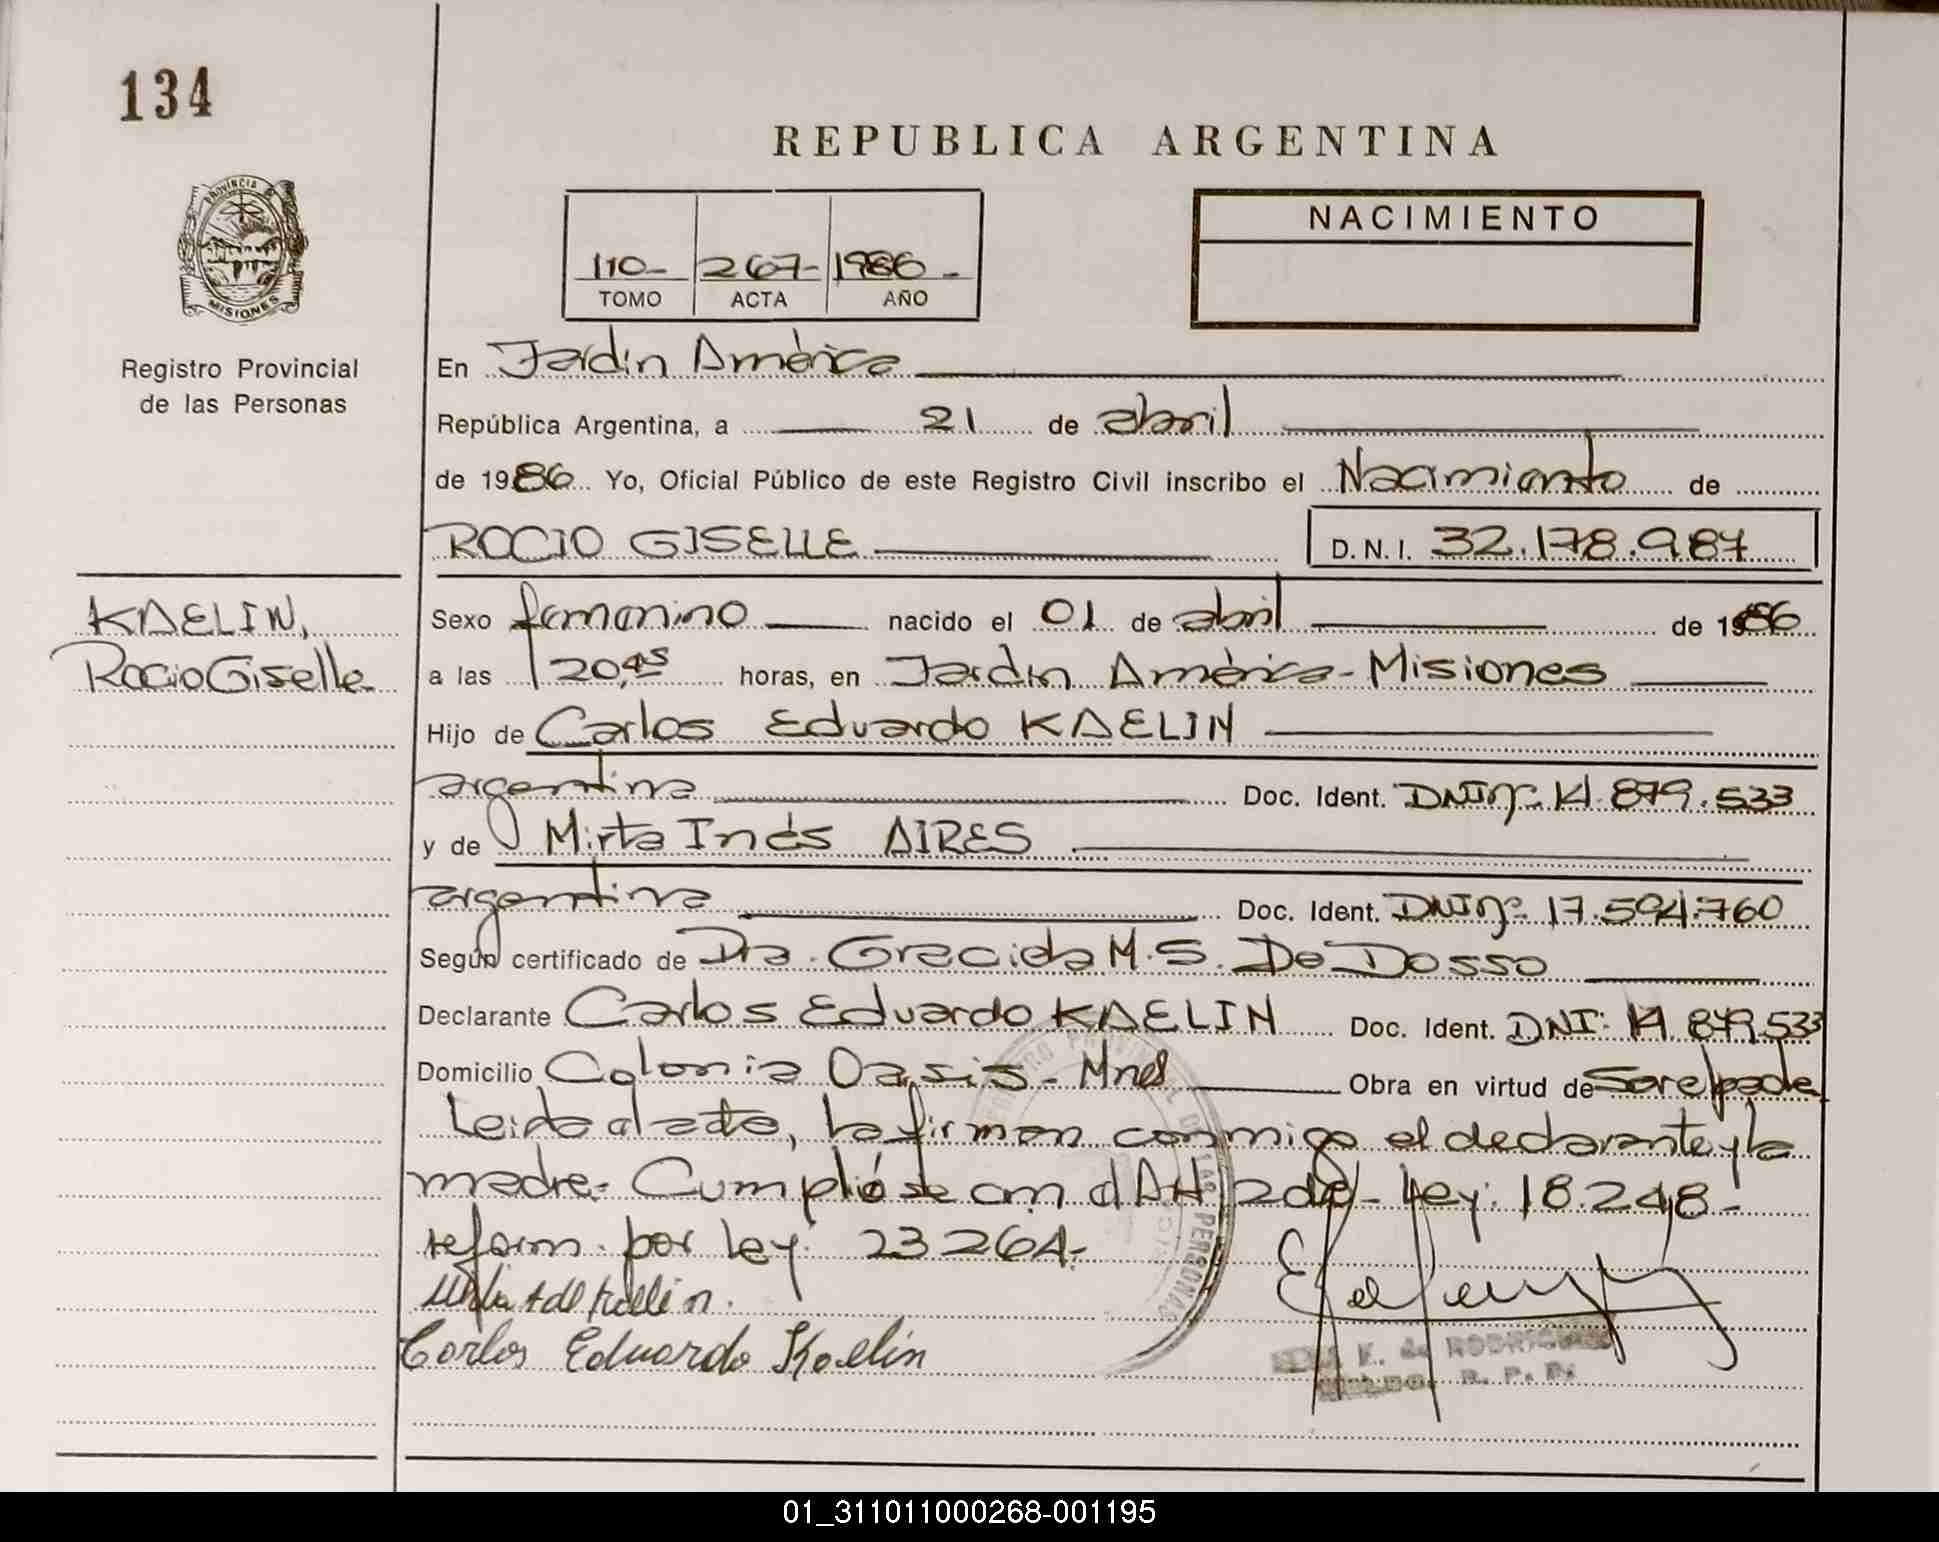 134
REPUBLICA ARGENTINA
PROVINCIA
MISIONES
110- 267- 1986-
TOMO ACTA AÑO
NACIMIENTO
Registro Provincial
de las Personas
En Jardin América
República Argentina, a 21 de abril
de 1986 Yo, Oficial Público de este Registro Civil inscribo el Nacimiento de
ROCIO GISELLE D.N.I. 32.178.987
KAELIN,
Rocio Giselle
Sexo femenino nacido el 01 de abril de 1986
a las 20,45 horas, en Jardin América-Misiones
Hijo de Carlos Eduardo KAELIN
argentina Doc. Ident. DNI nº 14.879.533
y de Mirta Inés AIRES
argentina Doc. Ident. DNI nº 17.594.760
Según certificado de Dra. Graciela M.S. De Dosso
Declarante Carlos Eduardo KAELIN Doc. Ident. DNI: 14.879.533
Domicilio Colonia Oasis - Mnes Obra en virtud de Ser el padre
Leida el acta, la firman conmigo el declarante y la
madre.- Cumplióse con el Art 2 de - Ley: 18.248-
reform. por ley 23264.-
Carlos Eduardo Kaelin
REGISTRO PROVINCIAL DE LAS PERSONAS
K. de RODRIGUEZ
R. P. P.
01_311011000268-001195